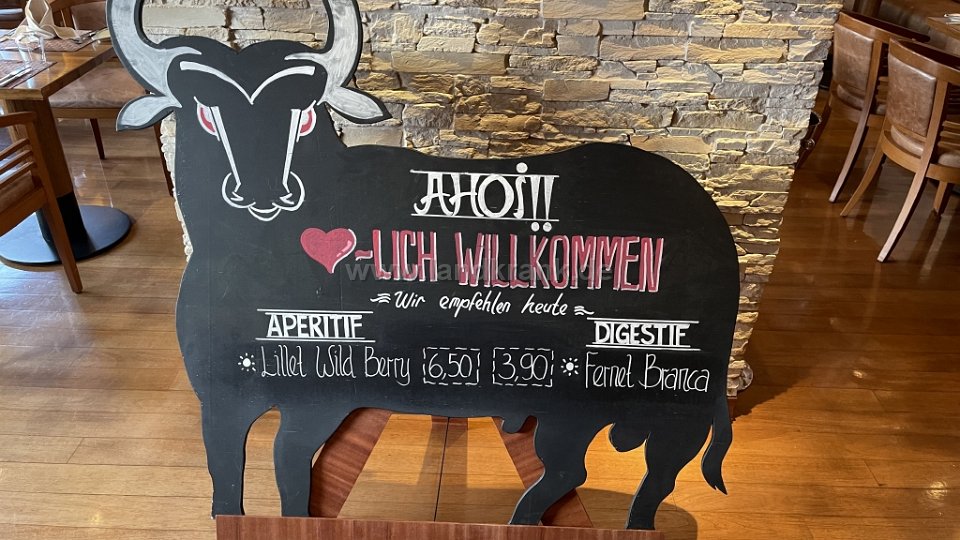 AHOI!!
♥-LICH WILLKOMMEN
www.landkrank.de
Wir empfehlen heute
APERITIF
Lillet Wild Berry 6,50
DIGESTIF
3,90 Fernet Branca